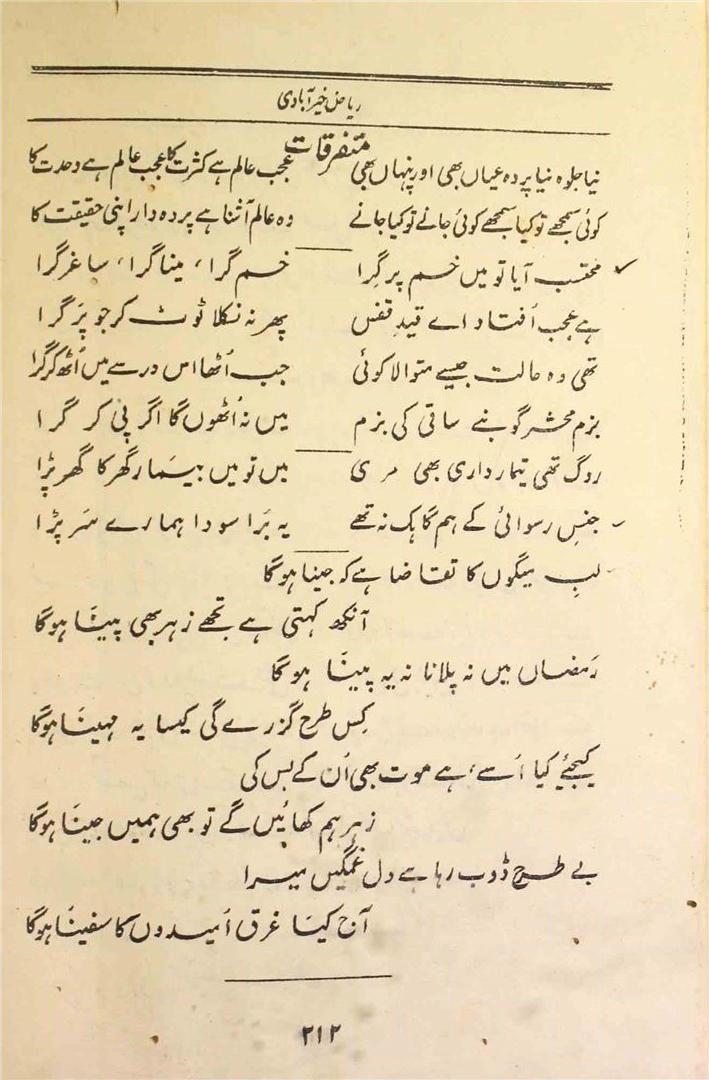 ریاض خیرآبادی
متفرقات
نیا جلوہ نیا پردہ عیاں بھی اور پنہاں بھی عجب عالم ہے کثرت کا عجب عالم ہے وحدت کا
کوئی سمجھے تو کیا سمجھے کوئی جانے تو کیا جانے وہ عالم آشنا ہے پردہ دار اپنی حقیقت کا
محتسب آیا تو میں خم پر گِرا خم گرا، مینا گرا، ساغر گرا
ہے عجب اُفتاد اے قیدِ قفس پھر نہ نکلا ٹوٹ کر جو پَر گرا
تھی وہ حالت جیسے متوالا کوئی جب اُٹھا اس در سے میں اُٹھ کر گرا
بزم محشر گو بنے ساقی کی بزم میں نہ اُٹھوں گا اگر پی کر گرا
روگ تھی تیمارداری بھی مری میں تو میں بیمار گھر کا گھر پڑا
جنسِ رسوائی کے ہم گاہک نہ تھے یہ بُرا سودا ہمارے سَر پڑا
لبِ میگوں کا تقاضا ہے کہ جینا ہوگا
آنکھ کہتی ہے تجھے زہر بھی پینا ہوگا
رَمضاں میں نہ پلانا نہ یہ پینا ہوگا
کِس طرح گزرے گی کیسا یہ مہینا ہوگا
کیجیے کیا اُسے، ہے موت بھی اُن کے بس کی
زہر ہم کھائیں گے تو بھی ہمیں جینا ہوگا
بے طرح ڈوب رہا ہے دل غمگیں میرا
آج کیا غرق اُمیدوں کا سفینا ہوگا
۲۱۲